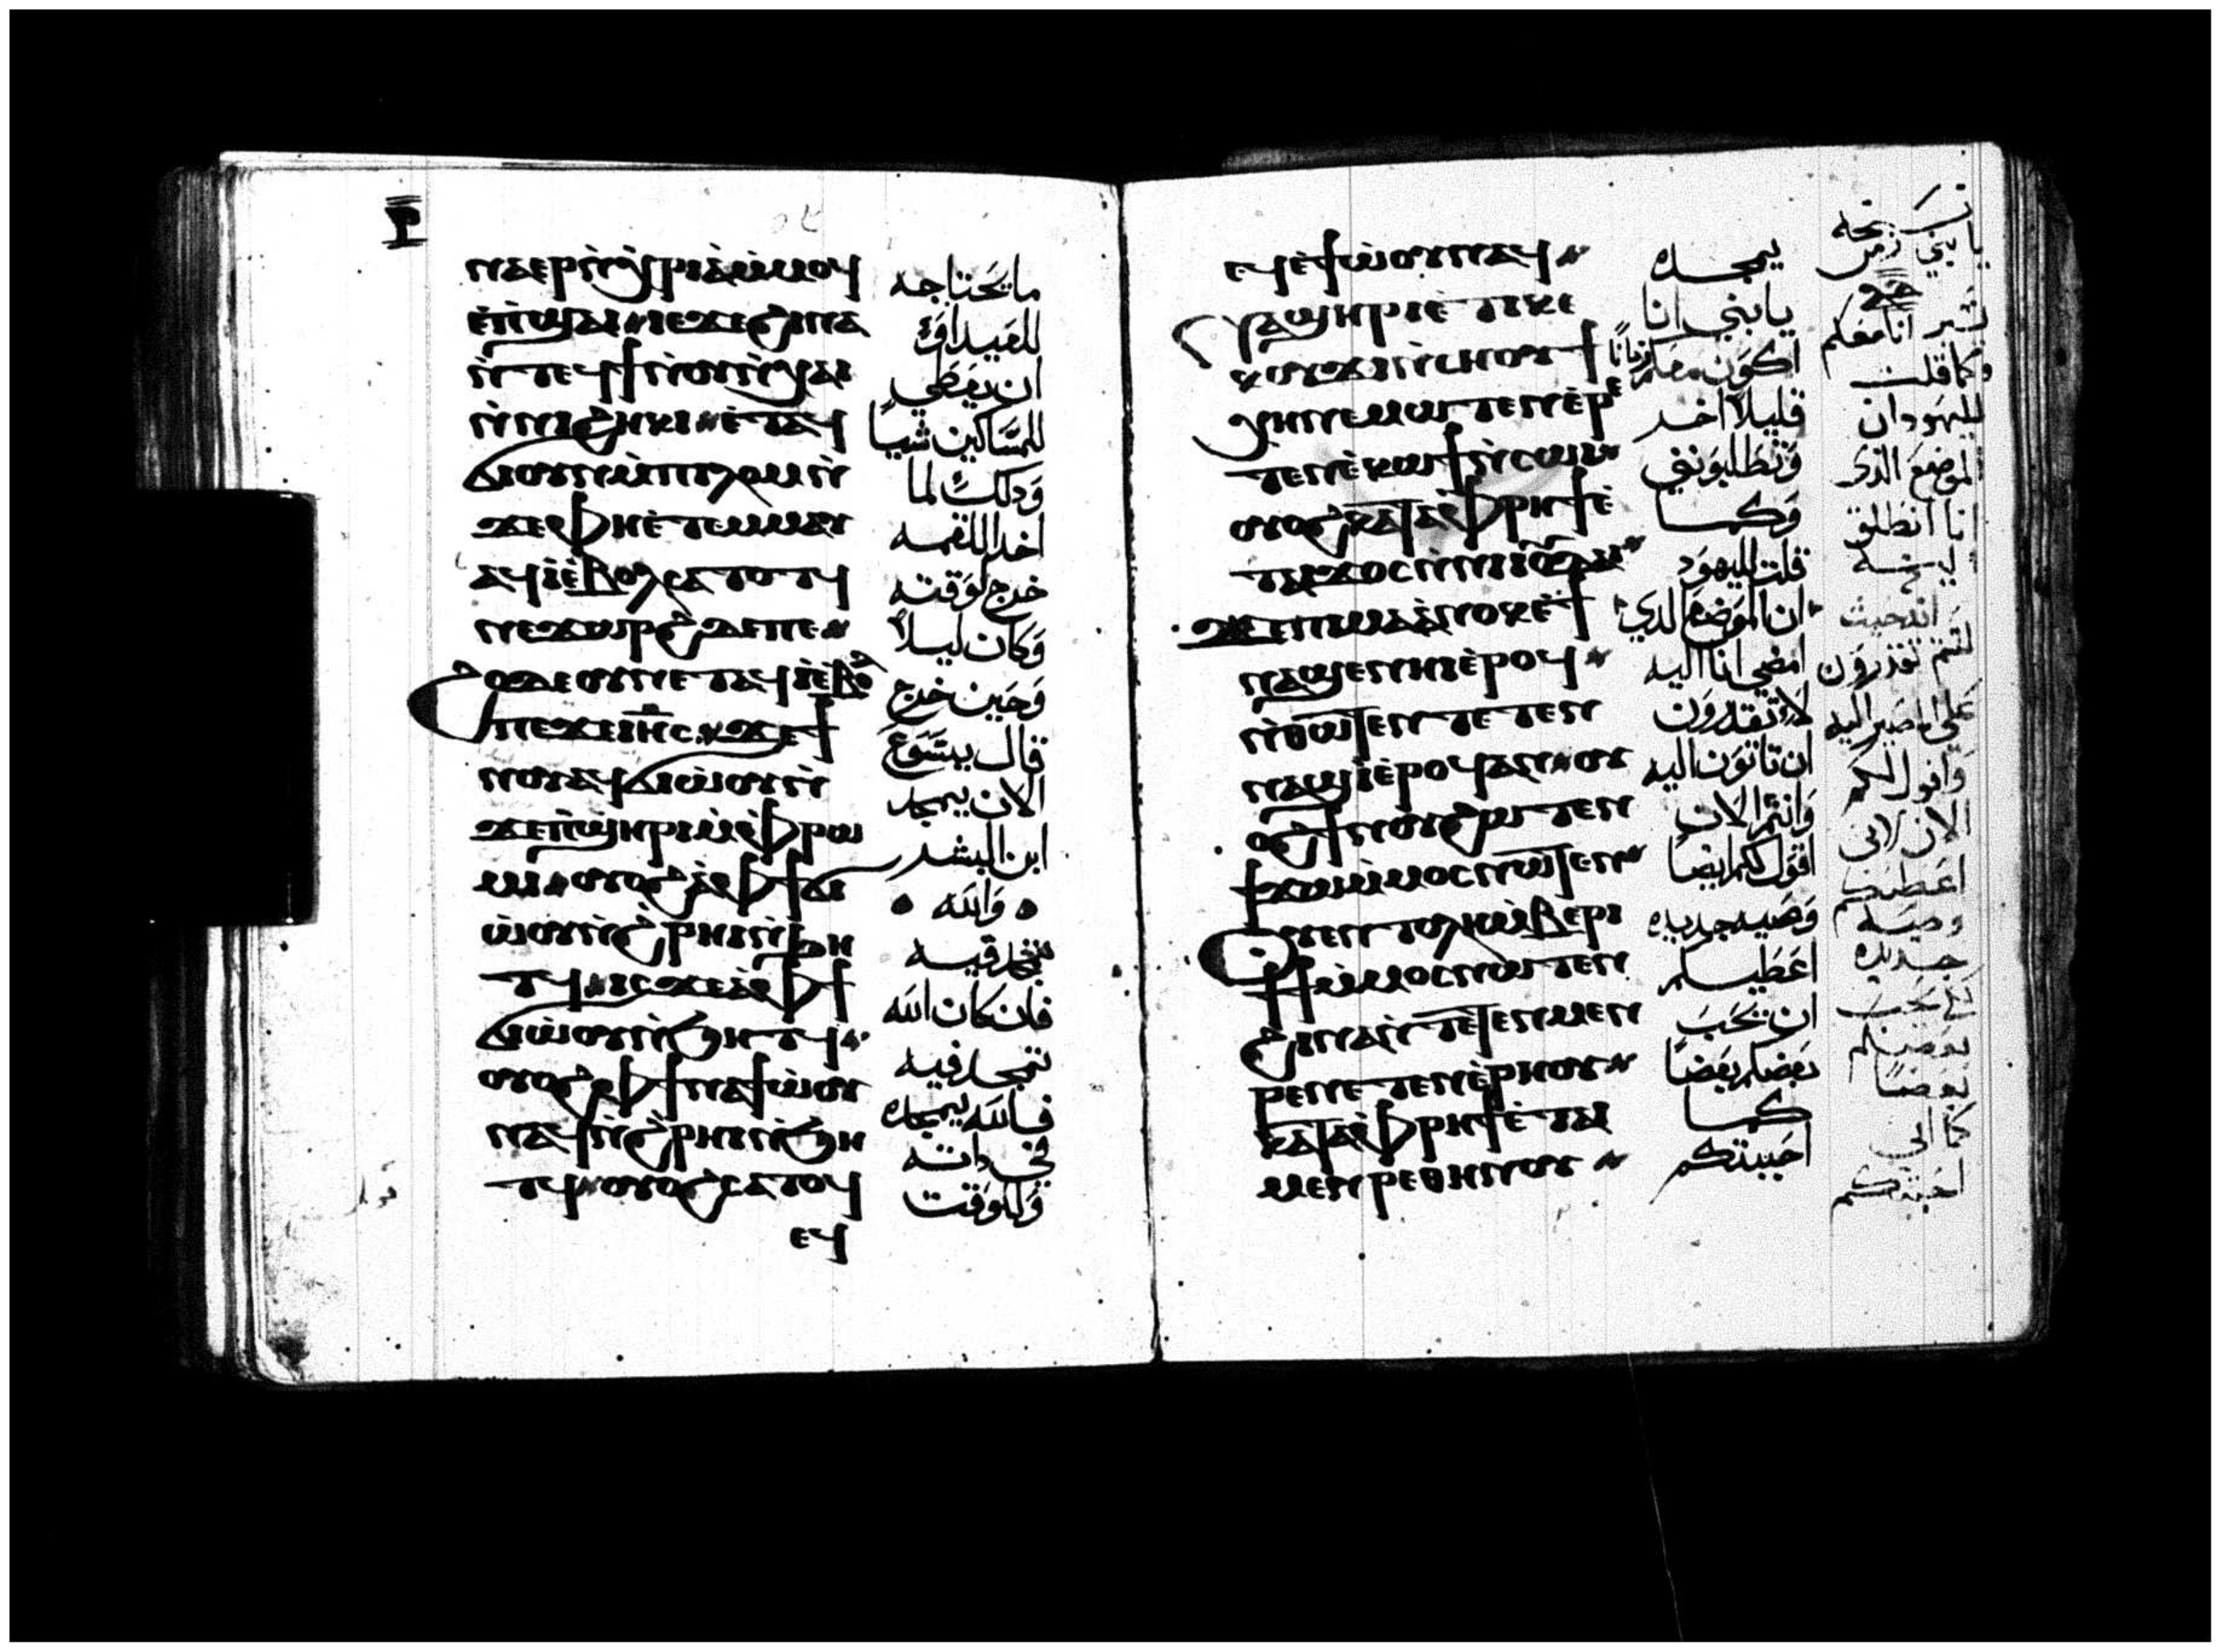 ⲣ
ⲛⲁⲉⲣⲛ̀ⲭⲣⲓⲁⲙ̀ⲙⲟϥ
ⲉ̀ⲡϣⲁⲓ ⲓⲉϫⲉϩⲓⲛⲁ
ⲛ̀ⲧⲉϥϯⲛ̀ⲟⲩⲛ̀ⲭⲁⲓ
ⲛ̀ⲛⲓϩⲏⲕⲓ ⲉ̀ⲧⲁϥ
ϭⲓⲟⲩⲛⲙ̀ⲡⲓⲗⲱⲙⲛ̀
ϫⲉⲫⲏⲉ̀ⲧⲉⲙⲙⲁⲩ
ⲁϥⲓ̀ⲉ̀ⲃⲟⲗⲥⲁⲧⲟⲧϥ
ⲛⲉϫⲱⲣϩϫⲉⲡⲉ
ϩⲟϫⲉⲟⲩⲛⲉⲧⲁϥⲓ̀ⲉ̀ⲃⲟ
ⲡⲉϫⲉⲓⲏⲥ ϫⲉϯ
ⲛⲟⲩⲁϥϭⲓⲱ̀ⲟⲩⲛ̀
ϫⲉⲡ̀ϣⲏⲣⲓⲙ̀ⲫⲣⲱ
ⲙⲓ ⲟⲩⲟϩⲁ̀ⲫϯϭⲓ
ⲱ̀ⲟⲩⲛ̀ϩ̀ⲣⲏⲓⲛ̀ϧⲏ
ⲧϥ ⲓⲥϫⲉⲁ̀ⲫϯ
ϭⲓⲱ̀ⲟⲩⲛ̀ϧⲏⲧϥ
ⲟⲩⲟϩⲫϯⲛⲁϯⲱ̀ⲟⲩ
ⲛⲁϥⲛ̀ϩ̀ⲣⲏⲓⲛ̀ϧⲏ
ⲧϥ ⲟⲩⲟϩⲥⲁⲧⲟⲩ
ⲉϥ
ما يحتاجه
للعيد او
ان يعطي
للمساكين شيا
وذلك لما
اخد اللقمه
خرج لوقته
وكان ليلا
وحين خرج
قال يسوع
الان يمجد
ابن البشر
والله
يتمجد فيه
فان كان الله
تمجد فيه
فالله يمجده
في داته
وللوقت
ⲉϥⲉ̀ϯⲱ̀ⲟⲩⲛⲁϥ
ⲛⲁϣⲏⲣⲓⲉ̀ⲧⲓⲕⲉ
ⲕⲟⲩϫⲓⲛ̀ⲥⲏⲟⲩϯ
ⲭⲏⲛⲉⲙⲱⲧⲉⲛⲉ̀ⲣⲉ
ⲧⲉⲛⲉ̀ⲕⲱϯⲛ̀ⲥⲱⲓ
ⲟⲩⲟϩⲕⲁⲧⲁⲫⲣⲏϯⲉ̀
ⲧⲁⲓϫⲟⲥⲛ̀ⲛⲓⲓⲟⲩⲇⲁⲓ
ϫⲉⲡⲓⲙⲁⲁ̀ⲛⲟⲕⲉ̀ϯ
ⲛⲁϣⲉⲛⲏⲓⲉ̀ⲣⲟϥ
ⲛ̀ⲑⲱⲧⲉⲛⲧⲉⲧⲉⲛ
ⲛⲁϣⲓ̀ⲉ̀ⲣⲟϥⲁⲛ ⲟⲩ
ⲟϩϯⲛⲟⲩϩⲱⲧⲉⲛ
ϯϫⲱⲙ̀ⲙⲟⲥⲛⲱⲧⲉⲛ
ⲟⲩⲉⲛⲧⲟⲗⲏⲙ̀ⲃⲉⲣⲓ
ϯϯⲙ̀ⲙⲟⲥⲛⲱⲧⲉⲛ
ϩⲓⲛⲁⲛ̀ⲧⲉⲧⲉⲛⲙⲉⲛ
ⲣⲉⲛⲉⲧⲉⲛⲉ̀ⲣⲏⲟⲩ
ⲕⲁⲧⲁⲫⲣⲏϯⲉ̀ⲧⲁⲓ
ⲙⲉⲛⲣⲉⲑⲏⲛⲟⲩ
يمجده
يا بني انا
اكون معكم زمانا
قليلا اخر
وتطلبونني
وكما
قلت لليهود
ان الموضع الدي
امضي انا اليه
لا تقدرون
ان تاتون اليه
وانتم الان
اقول لكم ايضا
وصيه جديده
اعطيكم
ان يحب
بعضكم بعضا
كما
احببتكم
نسخه
يا بني زمن
يسير انا معكم
وكما قلت
لليهود ان
الموضع الذى
انا انطلق
اليه
انتم تقدرون
على المصير اليه
واقول لكم
الان لانى
اعطيكم
وصيه
جديده
يحب
بعضكم
بعضا
كما انى
احببتكم